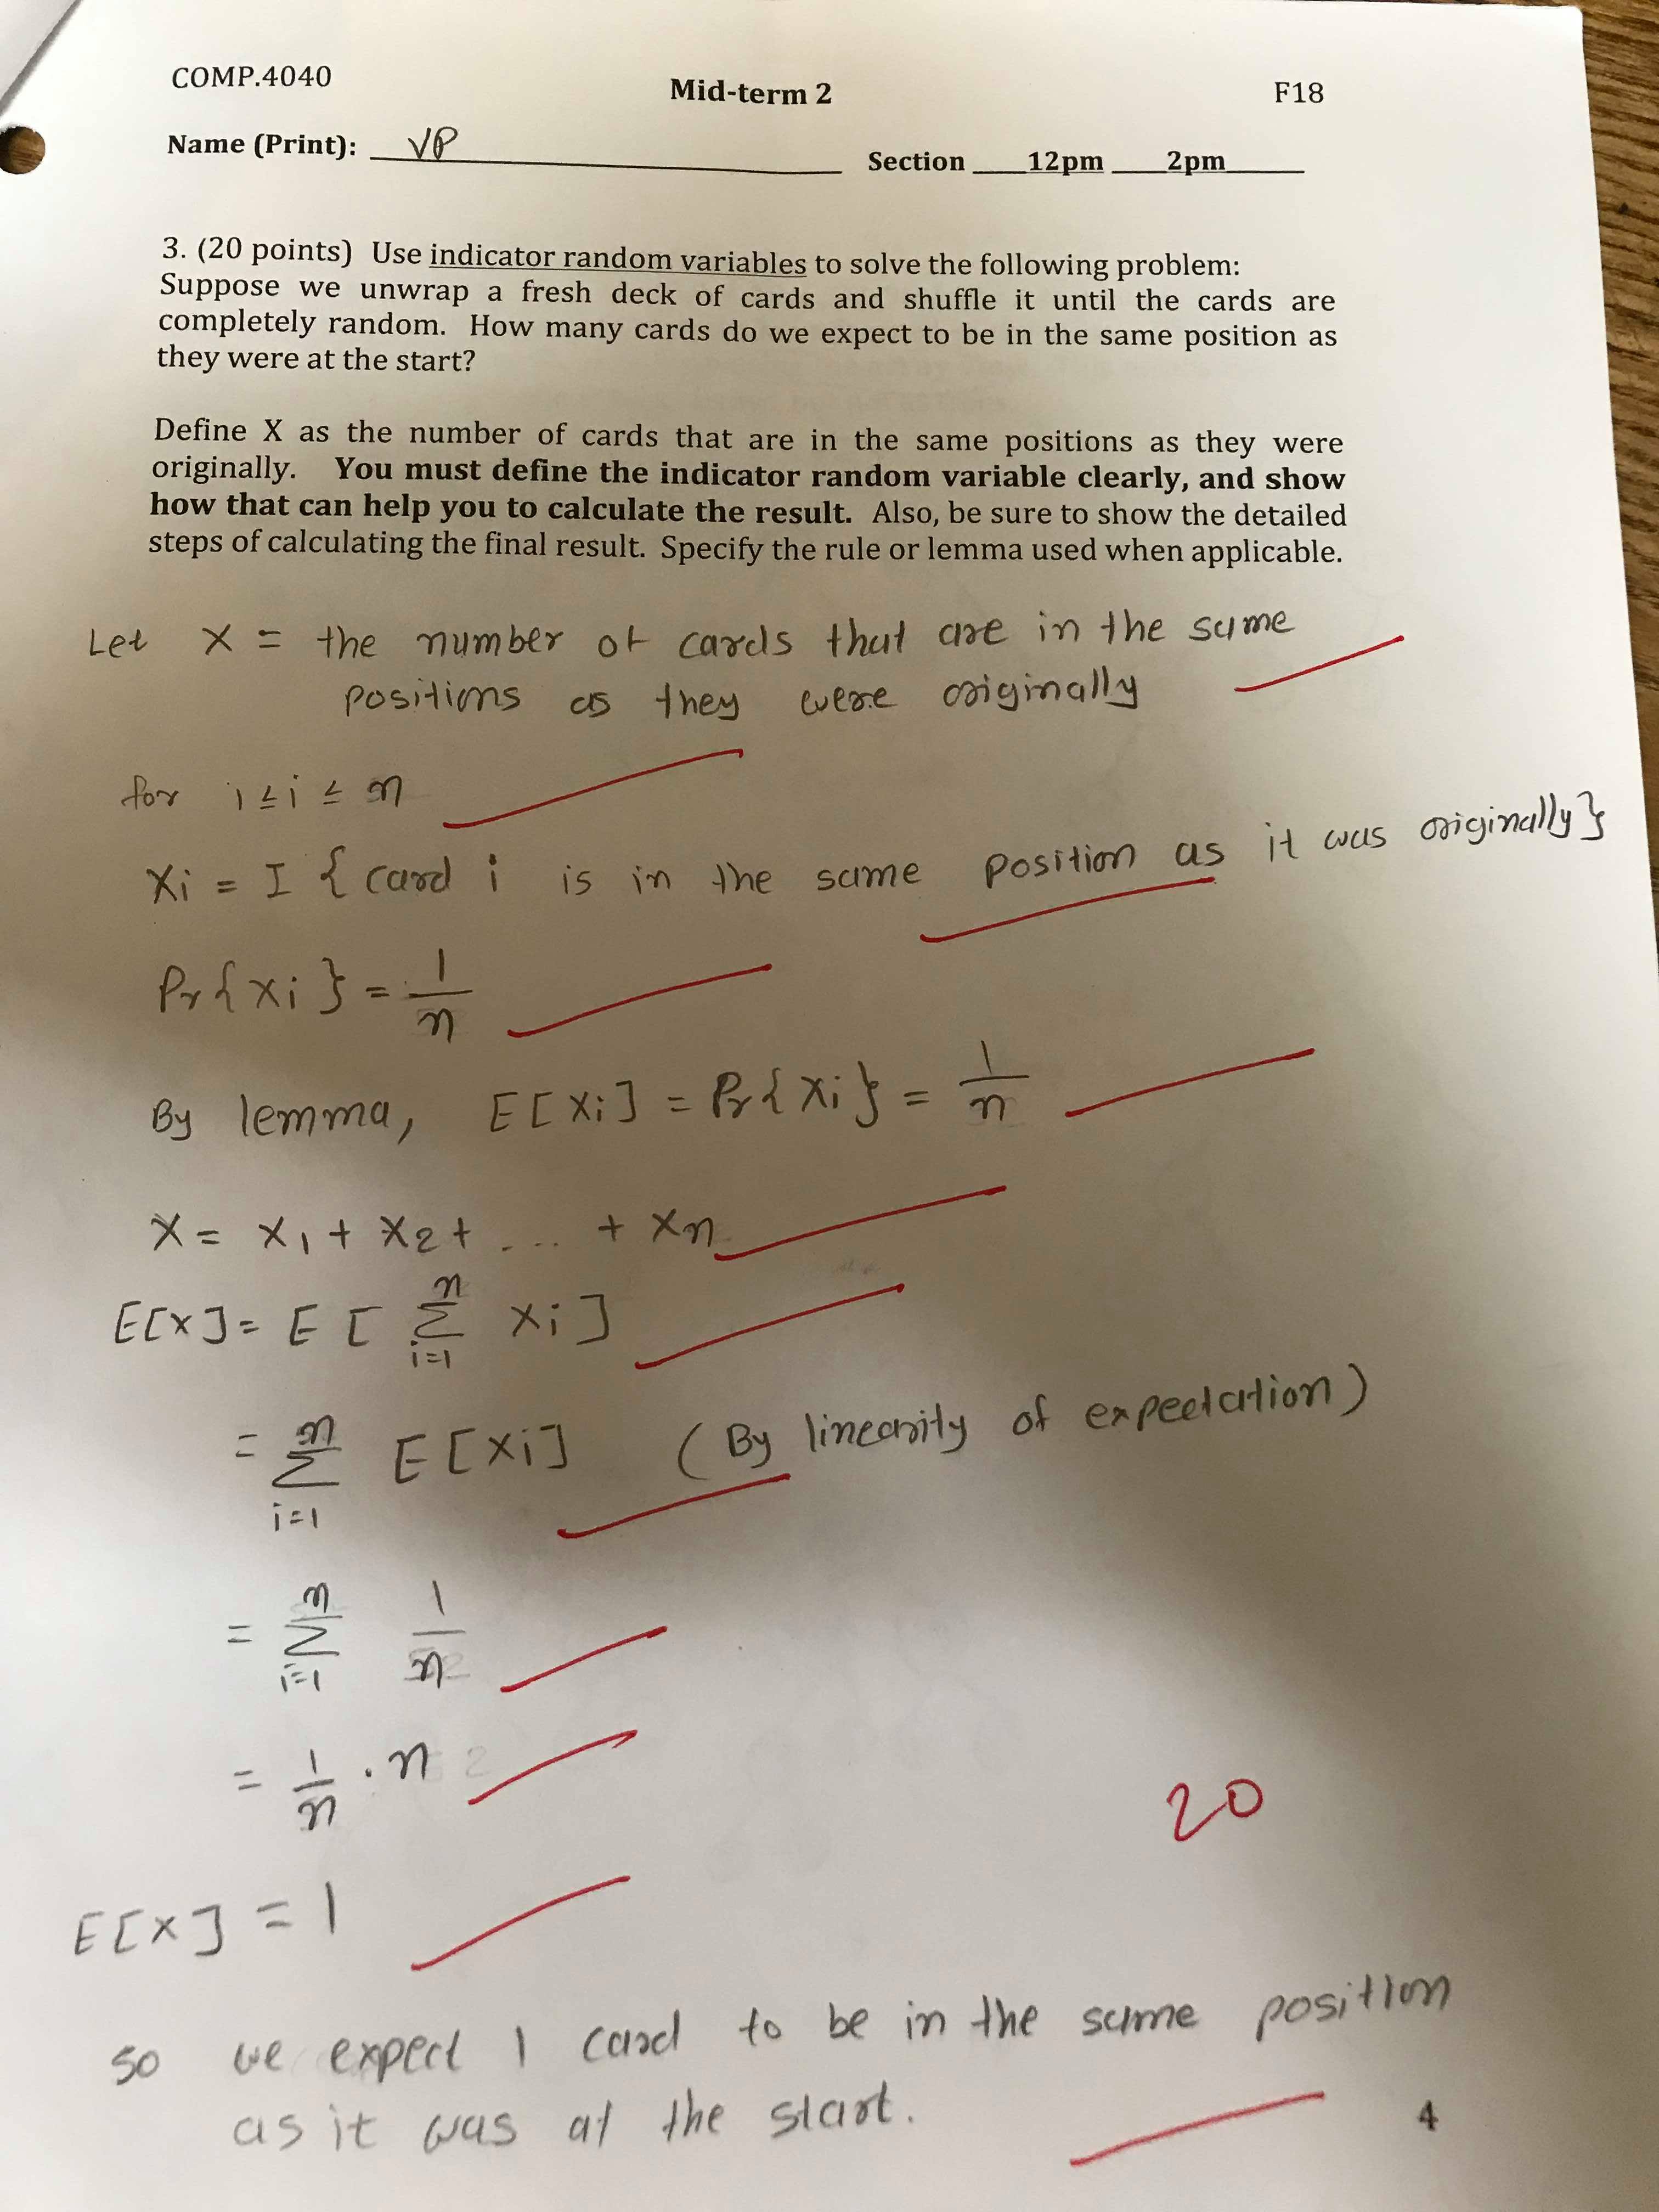 COMP.4040 Mid-term 2 F18
Name (Print): VP Section ____12pm ____2pm_____
3. (20 points) Use indicator random variables to solve the following problem:
Suppose we unwrap a fresh deck of cards and shuffle it until the cards are
completely random. How many cards do we expect to be in the same position as
they were at the start?
Define X as the number of cards that are in the same positions as they were
originally. You must define the indicator random variable clearly, and show
how that can help you to calculate the result. Also, be sure to show the detailed
steps of calculating the final result. Specify the rule or lemma used when applicable.
Let X = the number of cards that are in the same
positions as they were originally
for 1 ≤ i ≤ n
Xi = I { card i is in the same position as it was originally}
Pr{xi} = 1/n
By lemma, E[Xi] = Pr{Xi} = 1/n
X = X1 + X2 + .... + Xn
E[X] = E[ n Σ i=1 Xi ]
= n Σ i=1 E[Xi] (By linearity of expectation)
= n Σ i=1 1/n
= 1/n . n
20
E[X] = 1
so we expect 1 card to be in the same position
as it was at the start.
4